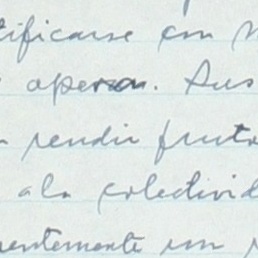 tificarse con
opera. Sus
rendir fruto
a la colectivid
entemente un